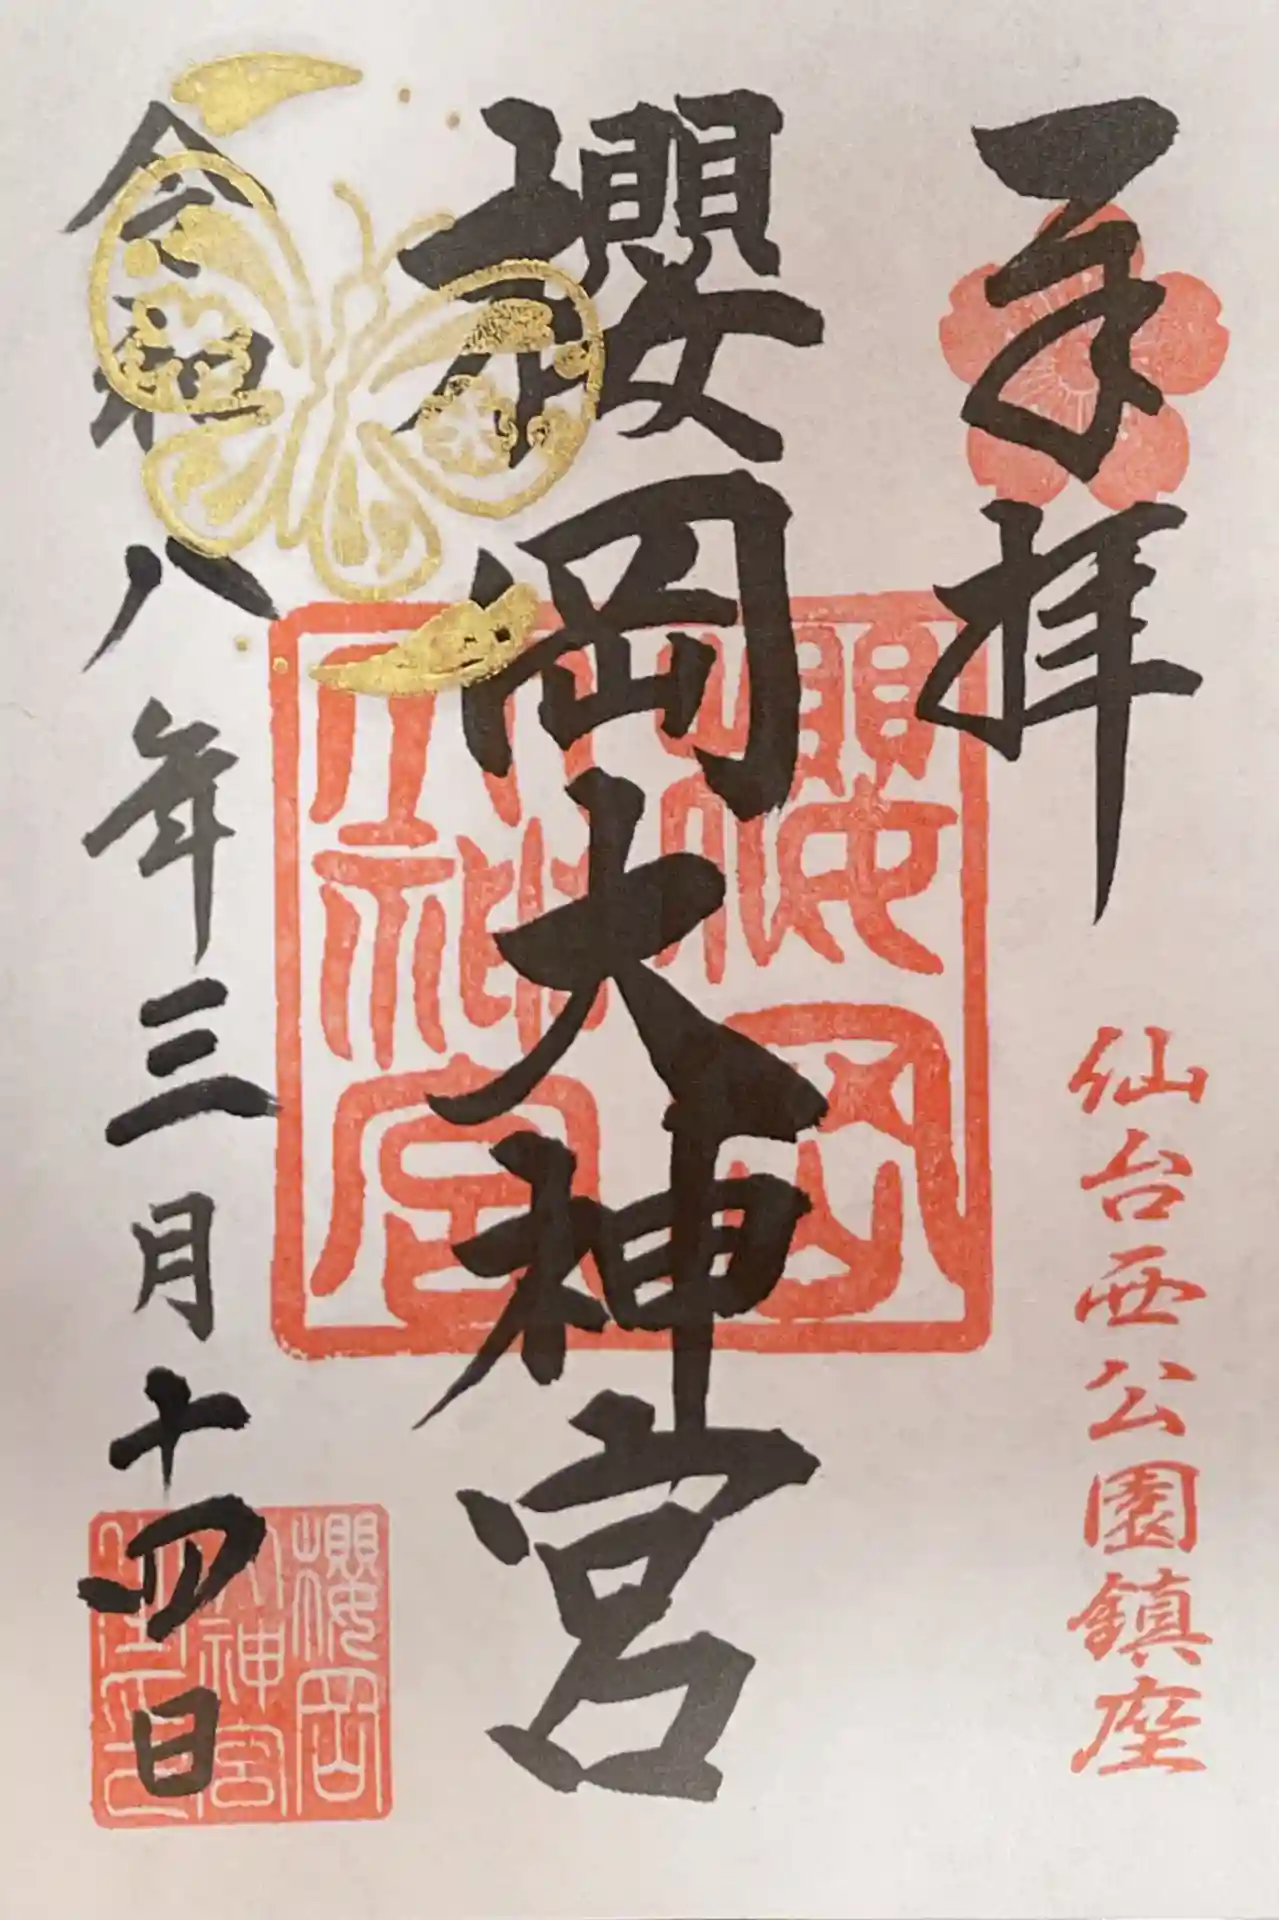 奉拝
仙台西公園鎮座
櫻岡大神宮
櫻岡
大神宮
令和八年三月十四日
櫻岡
大神宮